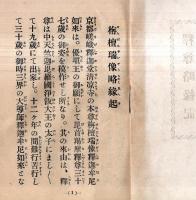 栴檀瑞像略縁起
京都嵯峨釋迦堂清凉寺の本尊栴檀瑞像釋迦牟尼
如來は。優塡王の御願にして毘首羯摩釋尊三十
七歳の御姿を模作せし所なり。其の來由は。釋
尊は中天竺迦毘羅國淨飯大王の太子にましく
て十九歳にて出家し。十二ヶ年の間難行苦行し
て三十歳の御時三界の大導師釋迦牟尼如來とな
(1)